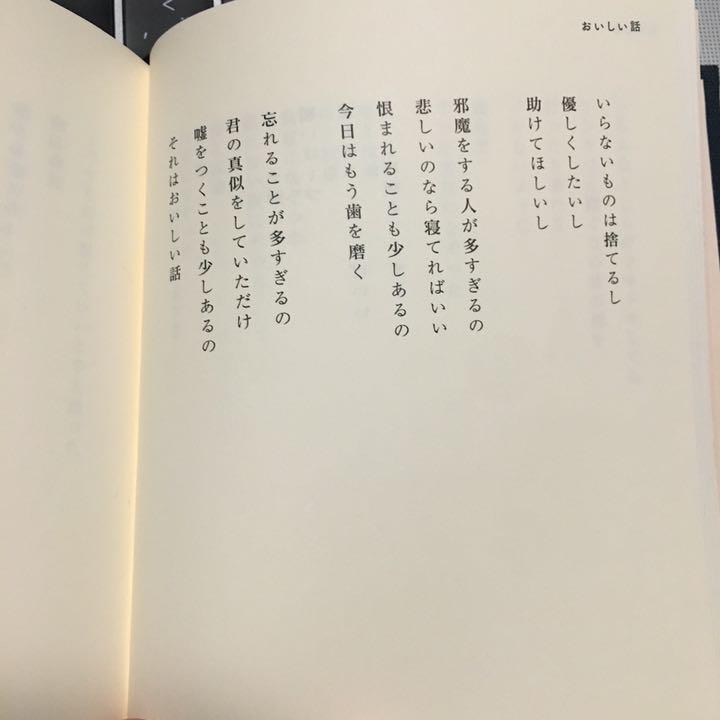 おいしい話
いらないものは捨てるし
優しくしたいし
助けてほしいし
邪魔をする人が多すぎるの
悲しいのなら寝てればいい
恨まれることも少しあるの
今日はもう歯を磨く
忘れることが多すぎるの
君の真似をしていただけ
嘘をつくことも少しあるの
それはおいしい話